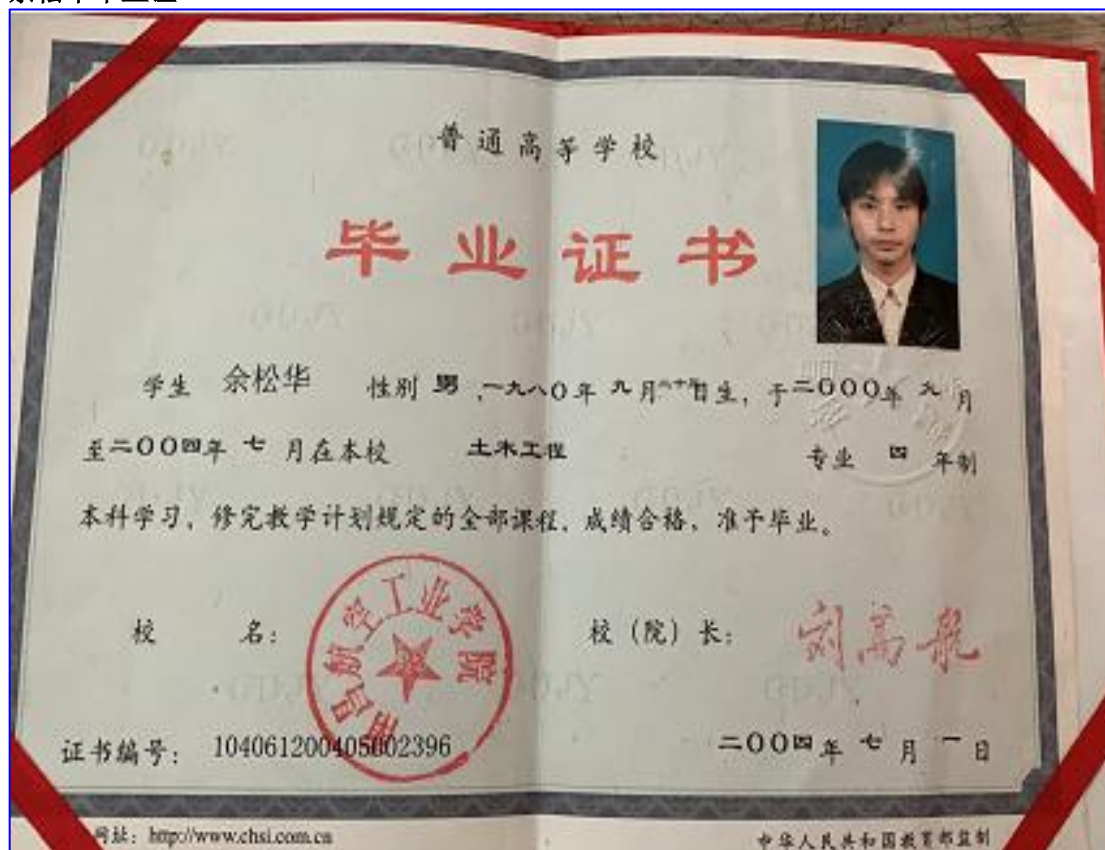 普通高等学校
毕业证书
学生 余松华 性别 男 ,一九八〇年 九月 日生,于二〇〇〇年 九 月
至二〇〇四年 七 月在本校 土木工程 专业 四 年制
本科学习,修完教学计划规定的全部课程,成绩合格,准予毕业。
校 名: 南昌航空工业学院 校(院)长: 刘高航
证书编号: 104061200405002396 二〇〇四年 七 月 一 日
网址: http://www.chsi.com.cn 中华人民共和国教育部监制